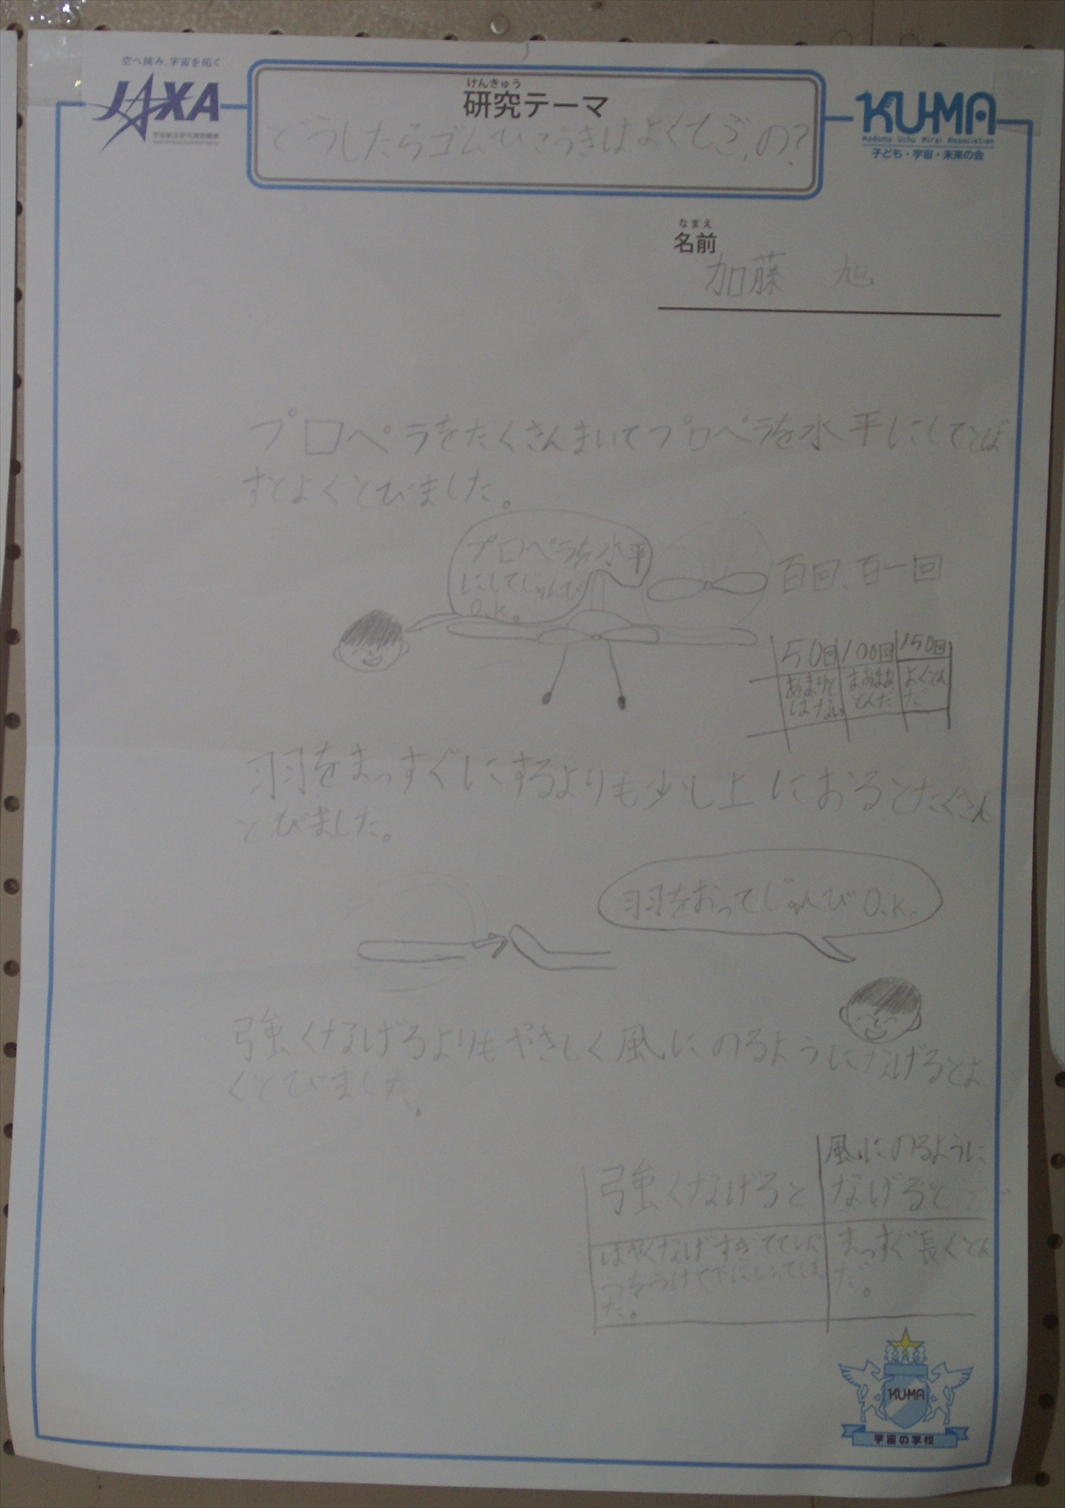 空へ挑み、宇宙を拓く
JAXA
けんきゅう
研究テーマ
どうしたらゴムひこうきはよくとぶの?
KU-MA
Kodomo Uchu Mirai Association
子ども・宇宙・未来の会
なまえ
名前
加藤 旭
プロペラをたくさんまいてプロペラを水平にしてとば
すとよくとびました。
プロペラを水平
にしてじゅんび
O.K.
百回、百一回
50回 100回 150回
あまりと まあまあ よくとん
ばない とんだ だ
羽をまっすぐにするよりも少し上におるとたくさん
とびました。
羽をおってじゅんびO.K.
強くなげるよりもやさしく風にのるようになげるとよ
くとびました。
風にのるように
強くなげると なげると
はやくなげすぎて まっすぐ長くとん
うをうけて下に だ。
た。
KU-MA
宇宙の学校